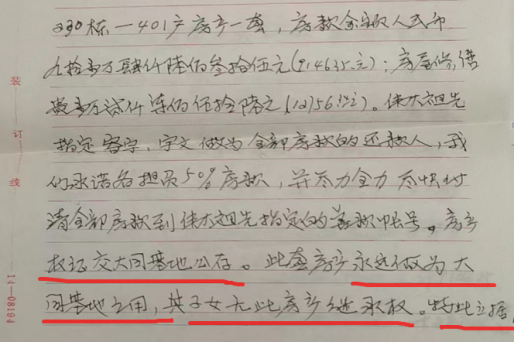 230栋一401户房产一套，房款余款人民币
九拾壹万肆仟陆佰叁拾伍元(914635元)；房屋
万贰仟伍佰陆 元(12756元)。伟大祖先
指定 宇、宇文做为全部房款的还款人，我
们承诺各担负50%房款，并尽力全力尽快付
清全部房款到伟大祖先指定的帐号。房产
权证交大同基地公存。此套房产永远做为大
同基地之用，其子女无此房产继承权。特此立据。
装
订
线
14-08194